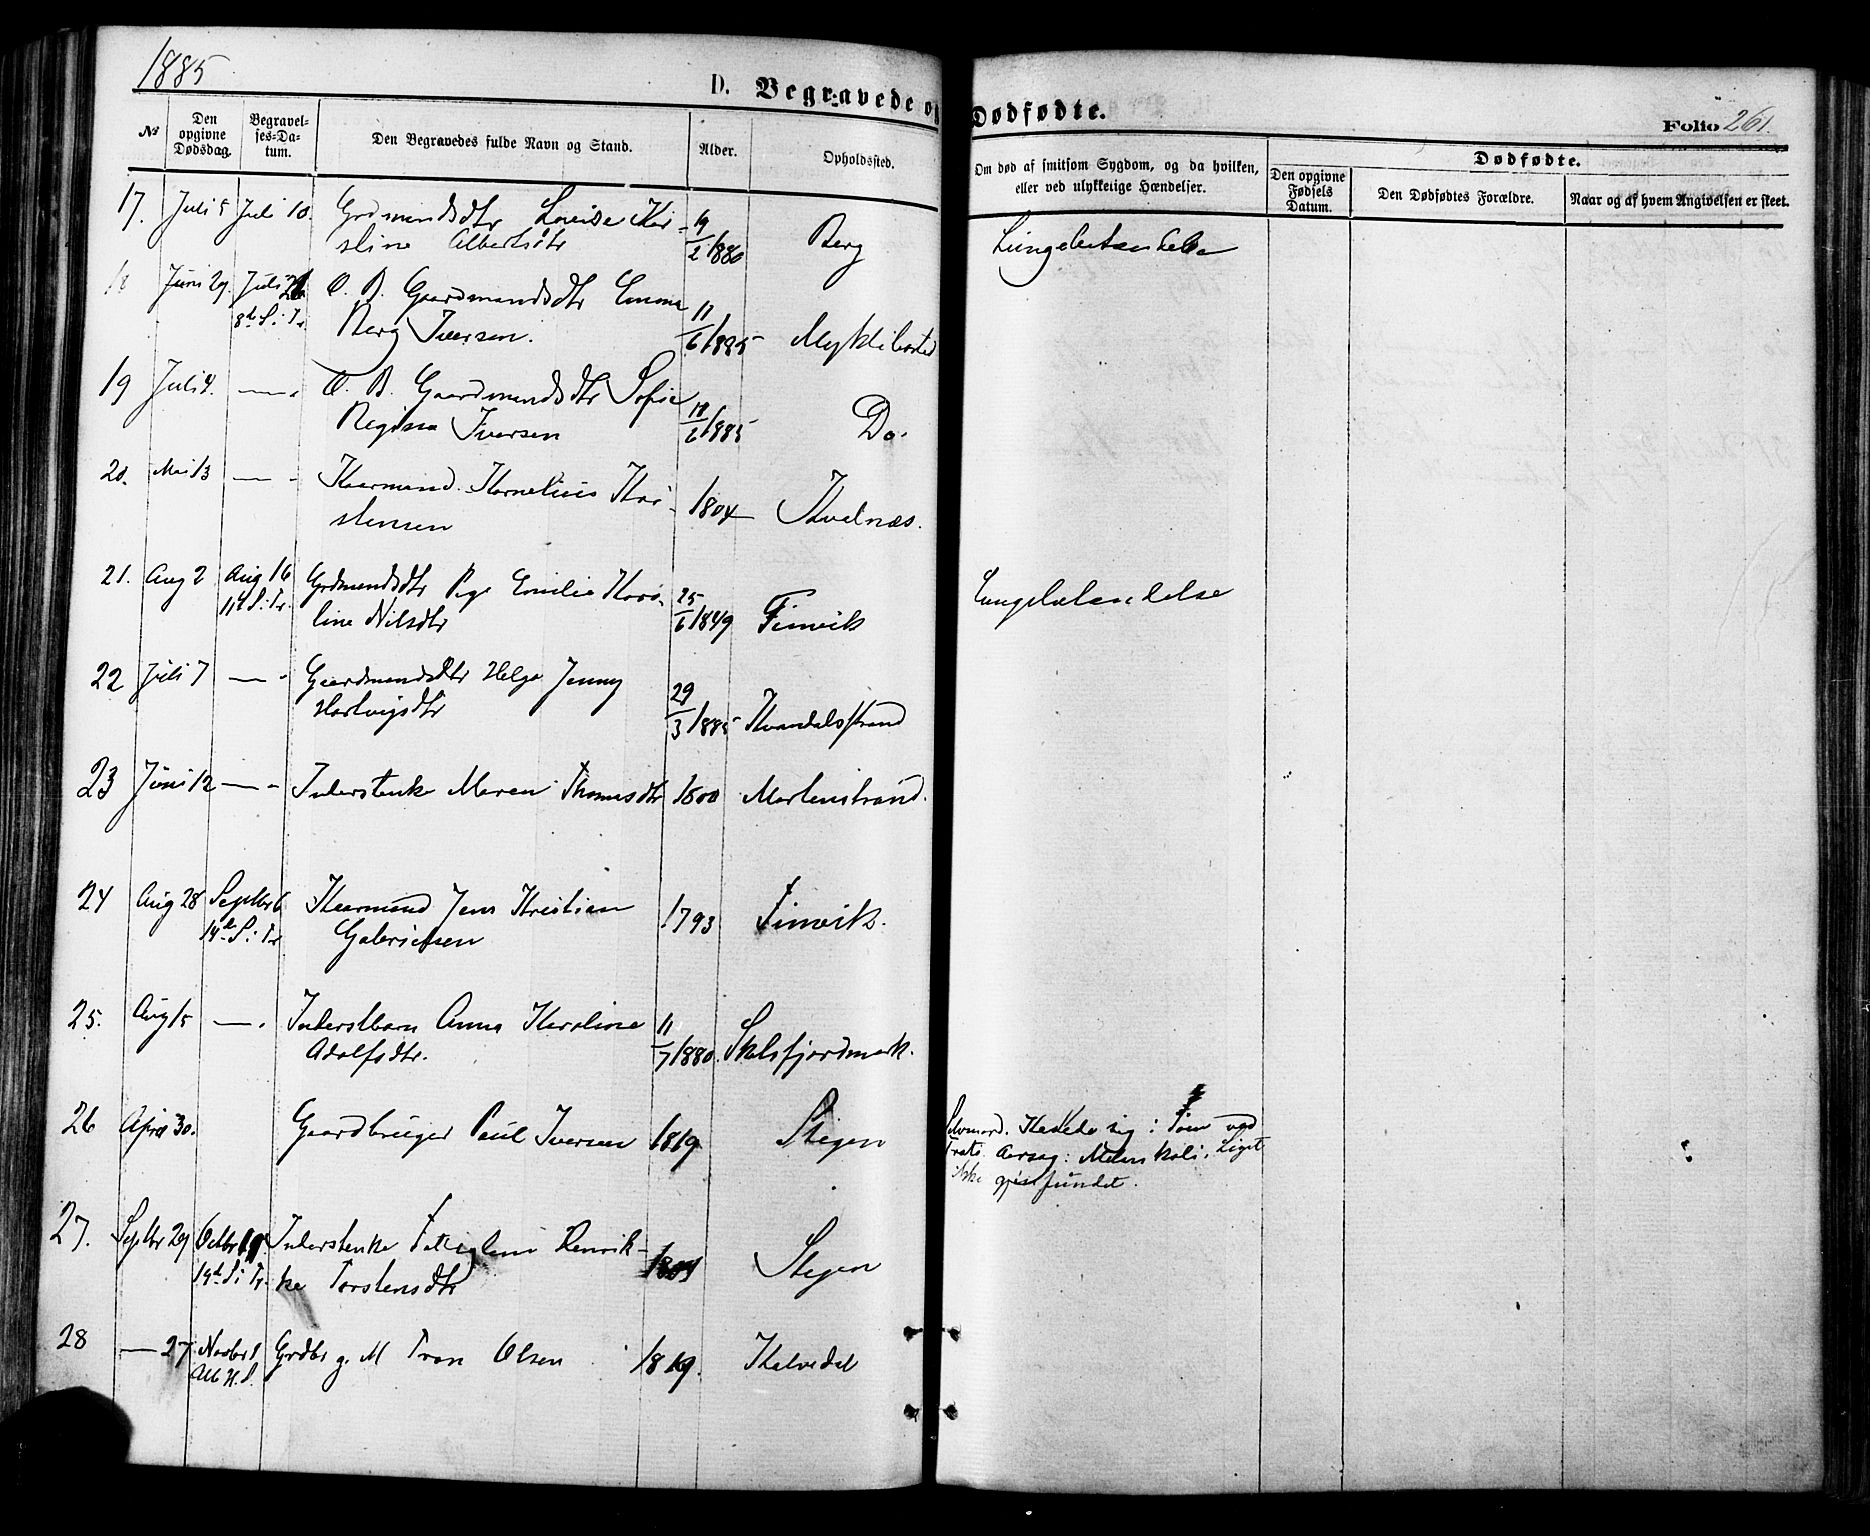 1885
D. Begravede og Dødfødte.
Folio 261.
No
Den opgivne Dødsdag.
Begravelses-Datum.
Den Begravedes fulde Navn og Stand.
Alder.
Opholdssted.
Om død af smitsom Sygdom, og da hvilken, eller ved ulykkelige Hændelser.
Dødfødte.
Den opgivne Fødsels Datum.
Den Dødfødtes Forældre.
Naar og af hvem Angivelsen er skeet.
17. Juli 5 Juli 10. Grdmandsdtr Lovise Kar- 19/2 1880 Berg Lungebetændelse
sline Albertsdtr
18 Juni 29. Juli 26 O. B. Gaardmandsdtr Emma 11/6 1885 Myklebostad
8d S. i Tr Berg Iversen.
19 Juli 4. — O. B. Gaardmandsdtr Sofie 18/6 1885 Do.
Regina Iversen
20. Mai 13 — Kaarmand Kornelius Kri- 1804 Kvalnæs.
stensen
21. Aug 2 Aug 16 Grdmandsdtr Emilie Karo- 25/6 1849 Finvik Lungebetændelse
11d S. i Tr. line Nilsdtr
22 Juli 7 — Gaardmandsdtr Helga Jenny 29/3 1885 Kvandalsstrand
Hartvigsdtr
23 Juni 12 — Inderstenke Maren Thomasdtr 1800 Martenstrand.
24 Aug 28 Septbr 6 Kaarmand Jens Kristian 1793 Finvik.
14de S. i Tr Gabrielsen
25. Aug 15 — Inderstbarn Anna Karoline 11/7 1880. Skelsfjordmark.
Adolfsdtr.
26 April 30. Gaardbruger Paul Iversen 1819 Stegen Selvmord. Kastede sig i Søen ved
Aarsag: Melankoli. Liget
ikke gjenfundet.
27. Septbr 29 Octbr Inderstenke Henrik- Stegen
19d S. i Tr. ke Torstensdtr
28 — 27 Novbr 1 Grdbr g. M Tron Olsen 1819. Kalvedal
All H. S.